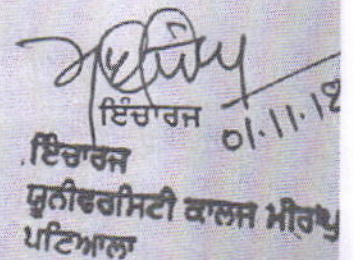 ਇੰਚਾਰਜ 01.11.12
ਇੰਚਾਰਜ
ਯੂਨੀਵਰਸਿਟੀ ਕਾਲਜ ਮੀਰਾਂਪੁ
ਪਟਿਆਲਾ